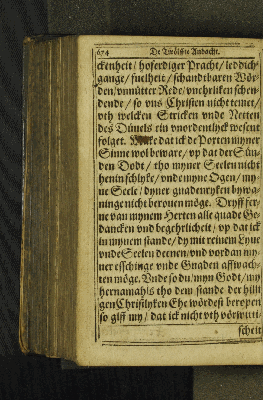 674 De Twölffte Andacht.
ckenheit / hoferdiger Pracht / leddich-
gange / fuelheit / schandtbaren Wör-
den / unnütter Rede / unehrliken schen-
dende / so uns Christen nicht temet /
uth welcken Stricken unde Netten
des Düuels ein unordentlyck wesent
folget. Make dat ick de Porten myner
Sinne wol beware / up dat der Sün-
den Dodt / tho myner Seelen nicht
henin schlyke / unde myne Ogen / my-
ne Seele / dyner gnadenryken bywa-
ninge nicht berouen möge. Dryff fer-
ne van mynem Herten alle quade Ge-
dancken und begehrlicheit / up dat ick
in mynem stande / dy mit reinem Lyue
unde Seelen deenen / und vordan my-
ner esschinge unde Gnaden affwach-
ten möge. Unde so du / myn Godt / my
hernamahls tho dem stande der hilli-
gen Christlyken Ehe wördest beropen
so giff my / dat ick nicht uth vörwitti-
scheit